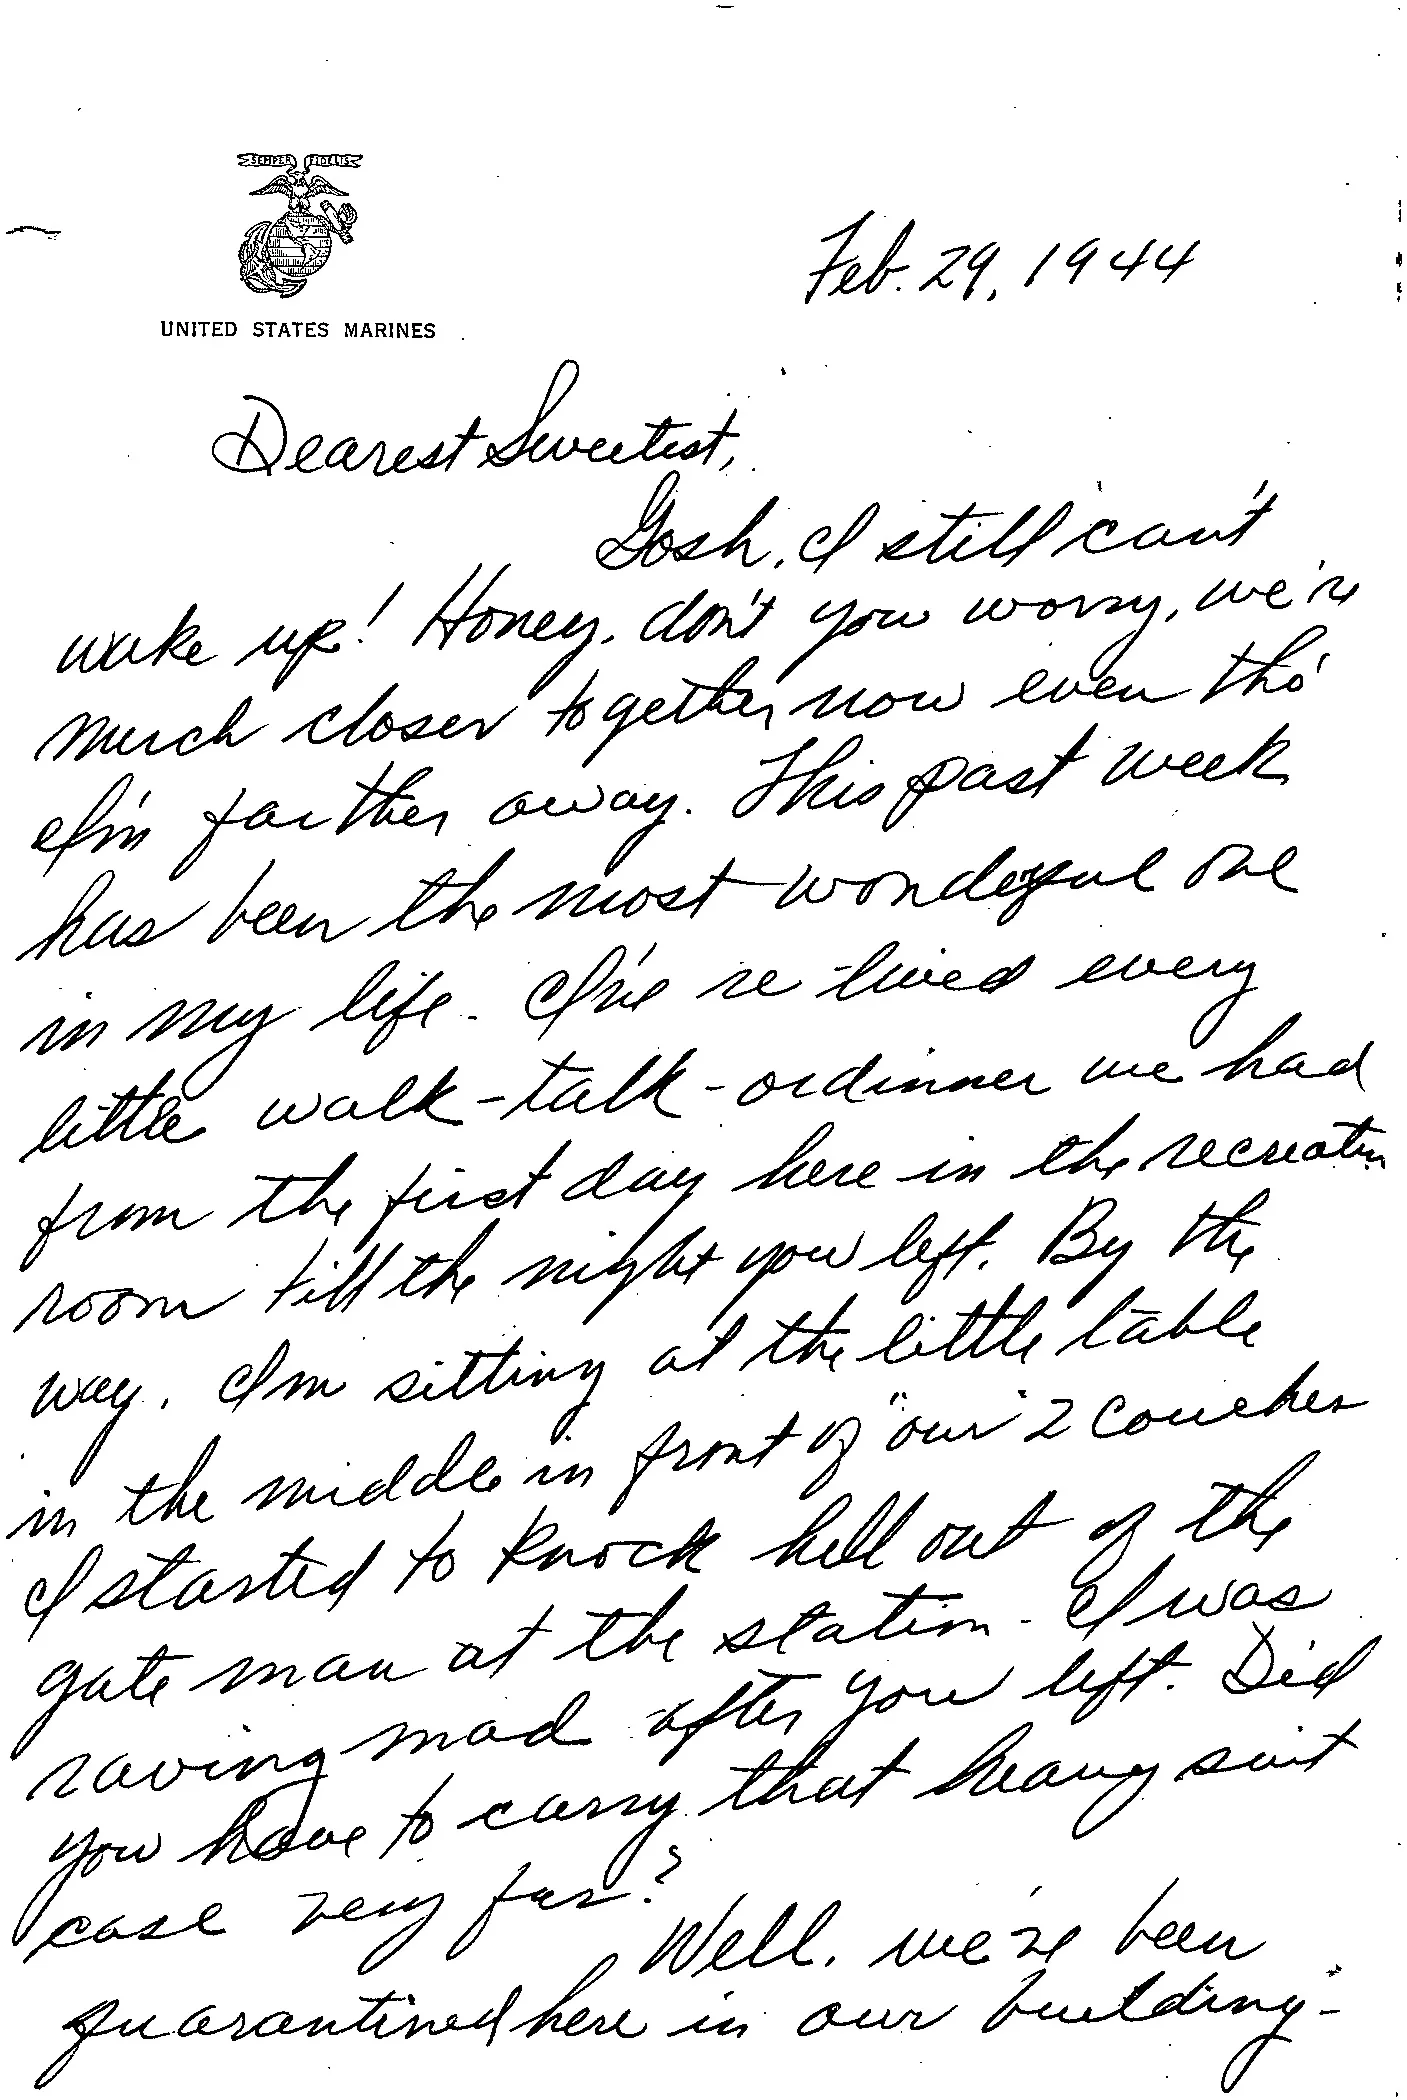 SEMPER FIDELIS
UNITED STATES MARINES
Feb. 29, 1944
Dearest Sweetest,
Gosh, I still can't
wake up! Honey, don't you worry, we're
much closer together now even tho'
I'm farther away. This past week
has been the most wonderful one
in my life. I've re-lived every
little walk-talk-or dinner we had
from the first day here in the recreation
room till the night you left. By the
way, I'm sitting at the little table
in the middle in front of "our" 2 couches
I started to knock hell out of the
gate man at the station - I was
raving mad after you left. Did
you have to carry that heavy suit
case very far?
Well, we've been
quarantined here in our building-